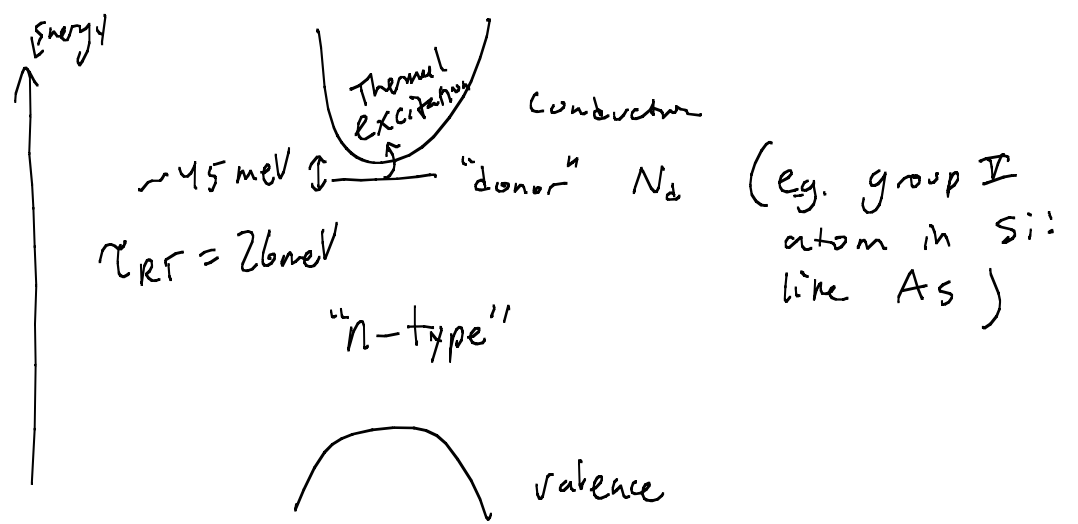 Energy
Thermal
excitation
conduction
~45 meV
"donor" Nd (e.g. group V
atom in Si:
like As)
τRT = 26meV
"n-type"
valence